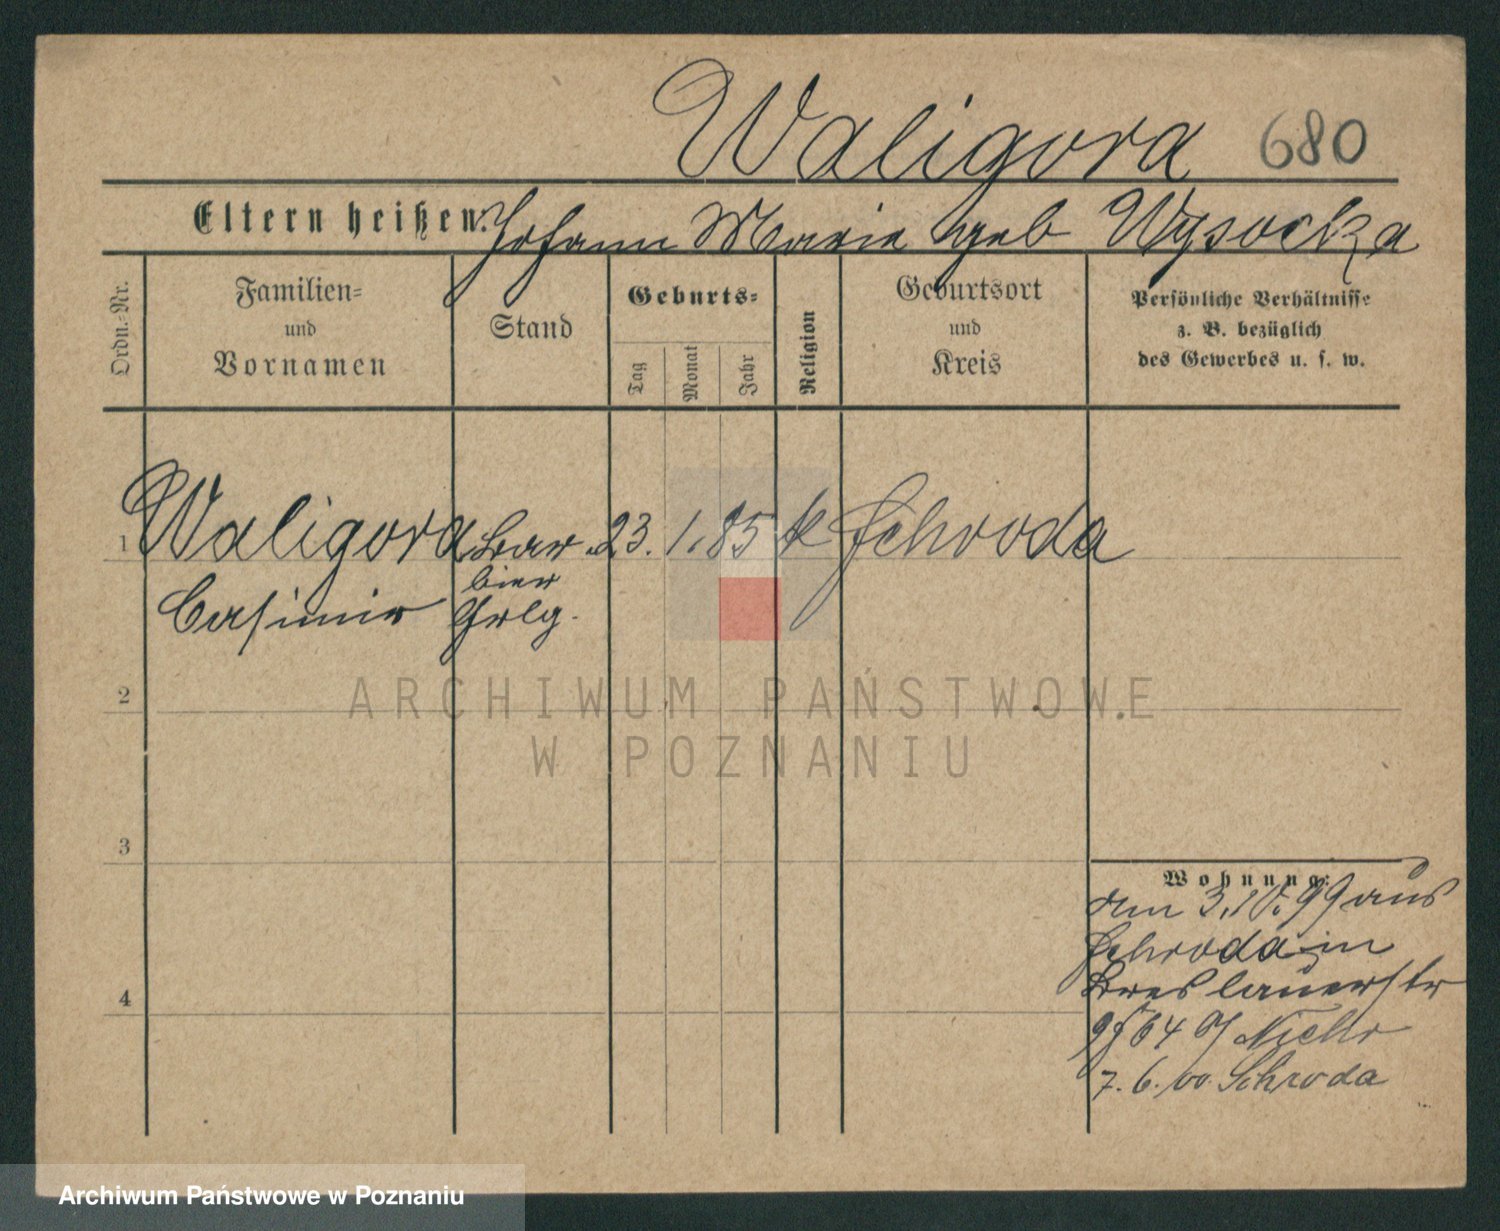 Waligora 680
Eltern heißen: Johann Marie geb Wysocka
Ordn.-Nr.
Familien-
und
Vornamen
Stand
Geburts-
Tag
Monat
Jahr
Religion
Geburtsort
und
Kreis
Persönliche Verhältnisse
z. B. bezüglich
des Gewerbes u. s. w.
1 Waligora Bar 23. 1. 85 k Schroda
bier
Casimir Grlg.
2
ARCHIWUM PAŃSTWOWE
W POZNANIU
3
Wohnung:
am 3.10.99 aus
Schroda in
Breslauerstr
9 J 64
7. 6. 00. Schroda
4
Archiwum Państwowe w Poznaniu